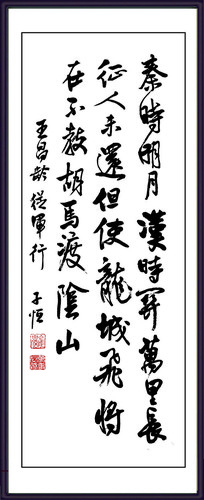 秦時明月漢時關萬里長
征人未還但使龍城飛將
在不教胡馬渡陰山
王昌齡從軍行 子恒